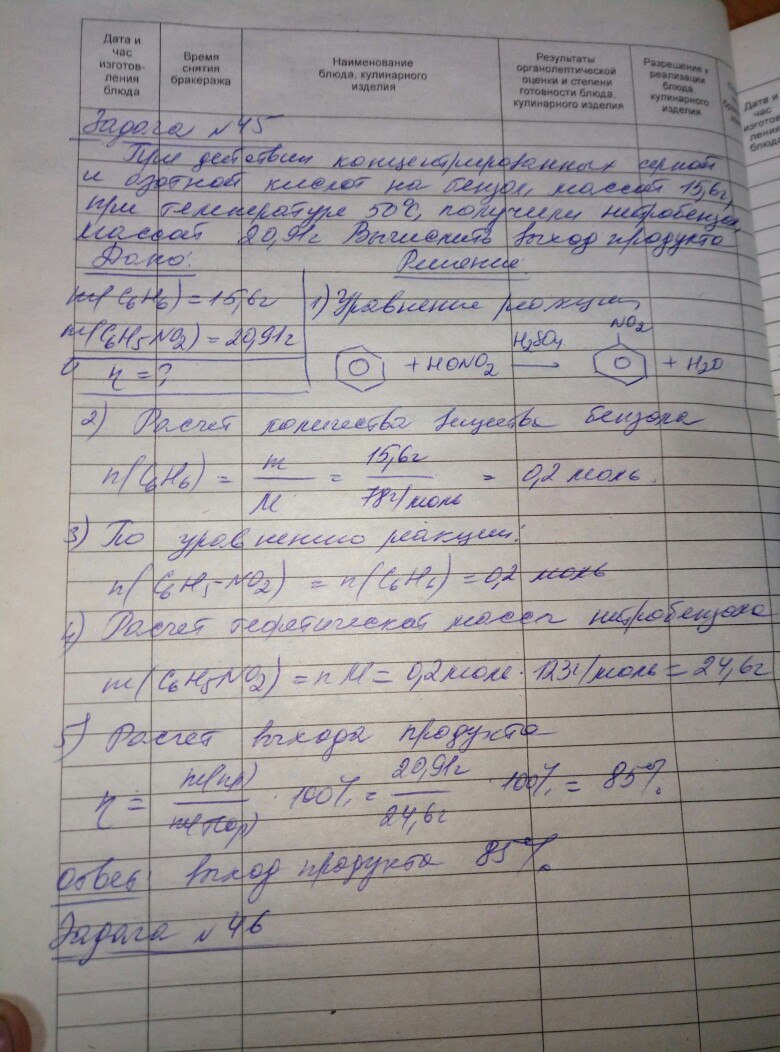 Дата и
час
изготов-
ления
блюда
Время
снятия
бракеража
Наименование
блюда, кулинарного
изделия
Результаты
органолептической
оценки и степени
готовности блюда,
кулинарного изделия
Разрешение к
реализации
блюда,
кулинарного
изделия
Дата и
час
изготов-
ления
блюда
Задача №45
При действии концентрированных серной
и азотной кислот на бензол, массой 15,6г,
при температуре 50°C, получили нитробензол,
массой 20,91г Вычислить выход продукта
Дано:
Решение:
m(C6H6) = 15,6г
m(C6H5NO2) = 20,91г
η = ?
1) Уравнение реакции
NO2
+ HONO2 H2SO4 + H2O
2) Расчет количества вещества бензола
n(C6H6) = m/M = 15,6г/78г/моль = 0,2 моль.
3) По уравнению реакции:
n(C6H5-NO2) = n(C6H6) = 0,2 моль
4) Расчет теоретической массы нитробензола
m(C6H5NO2) = n M = 0,2 моль · 123г/моль = 24,6г
5) Расчет выхода продукта
η = m(пр)/m(теор) · 100% = 20,91г/24,6г · 100% = 85%
Ответ: выход продукта 85%.
Задача №46